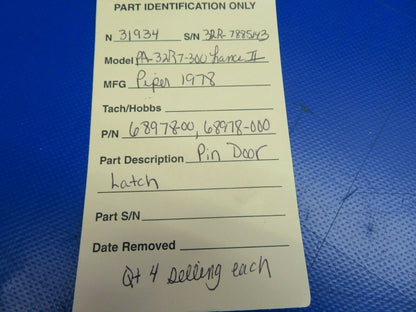 PART IDENTIFICATION ONLY
N 31934 S/N 32R-7885143
Model PA-32R7-300 Lance II
MFG Piper 1978
Tach/Hobbs
P/N 68978-00, 68978-000
Part Description Pin Door
Latch
Part S/N
Date Removed
Qt 4 Selling each